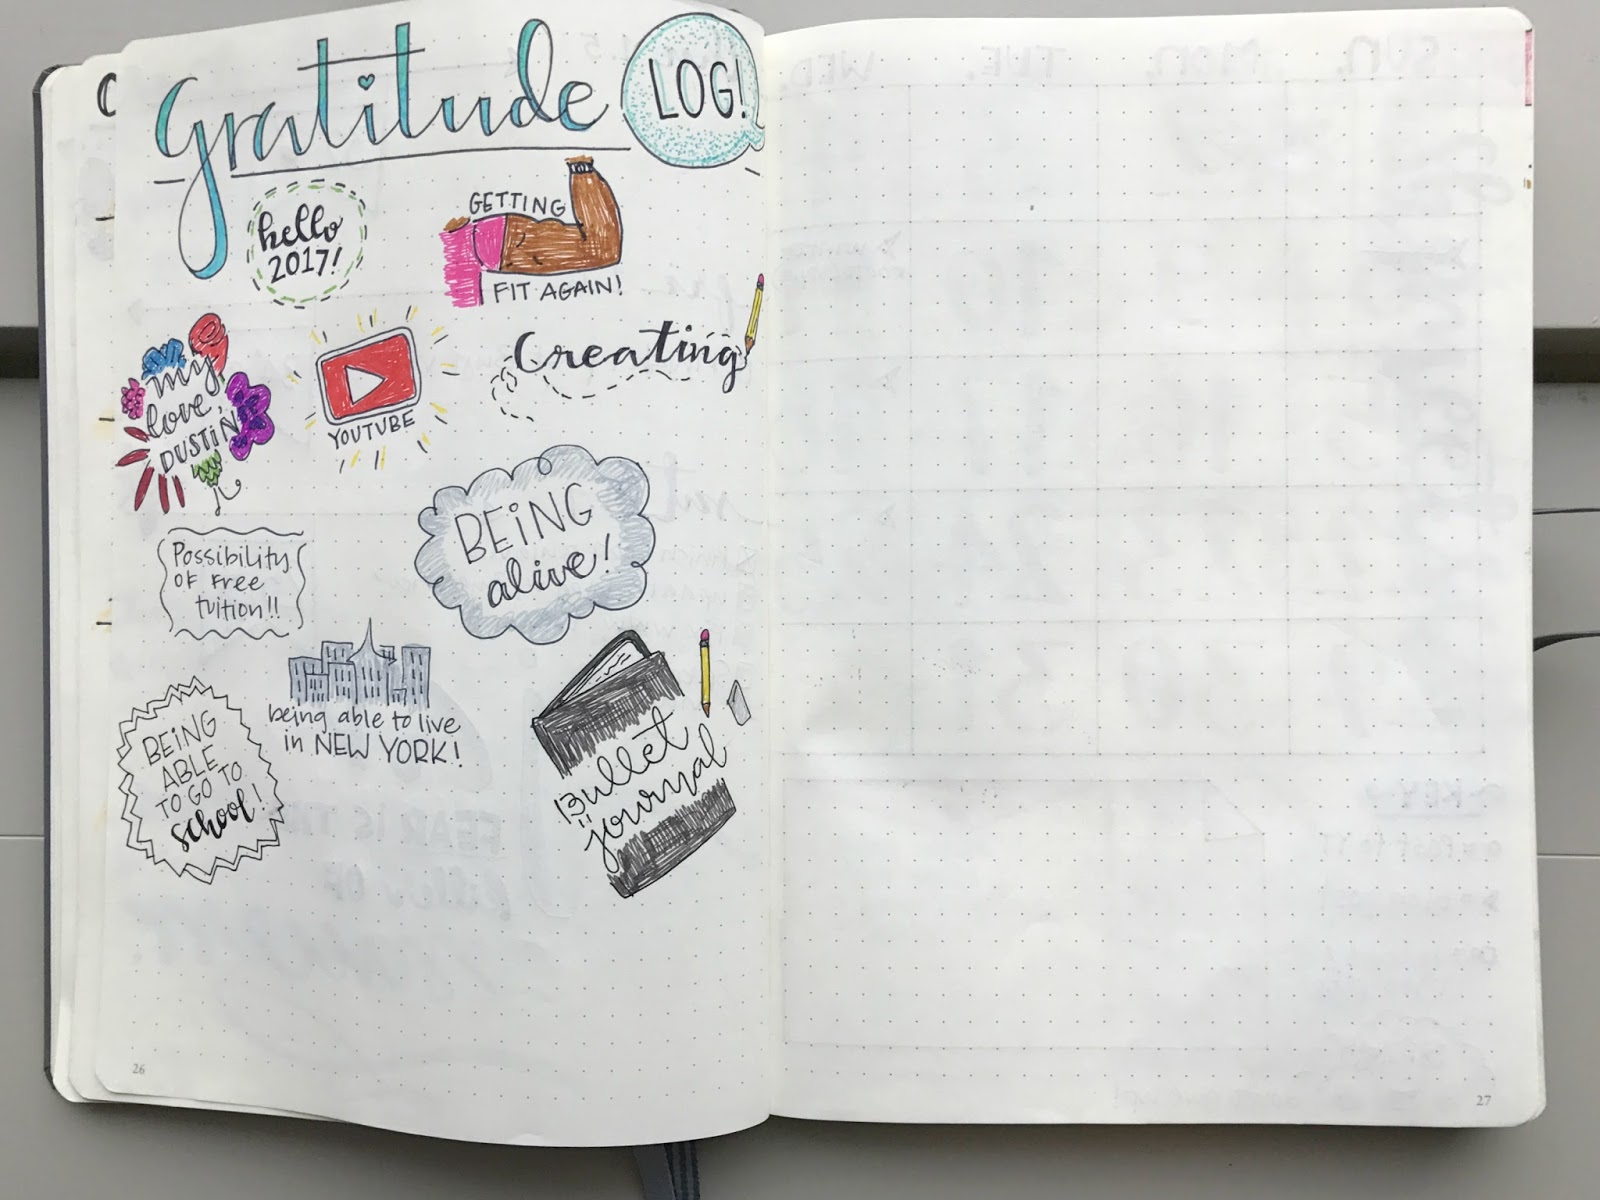 gratitude LOG!
hello
2017!
GETTING
FIT AGAIN!
my
love
DUSTIN
YOUTUBE
Creating
BEING
alive!
Possibility
OF FREE
tuition!!
being able to live
in NEW YORK!
BEING
ABLE
TO GO TO
school!
Bullet
journal
26
27